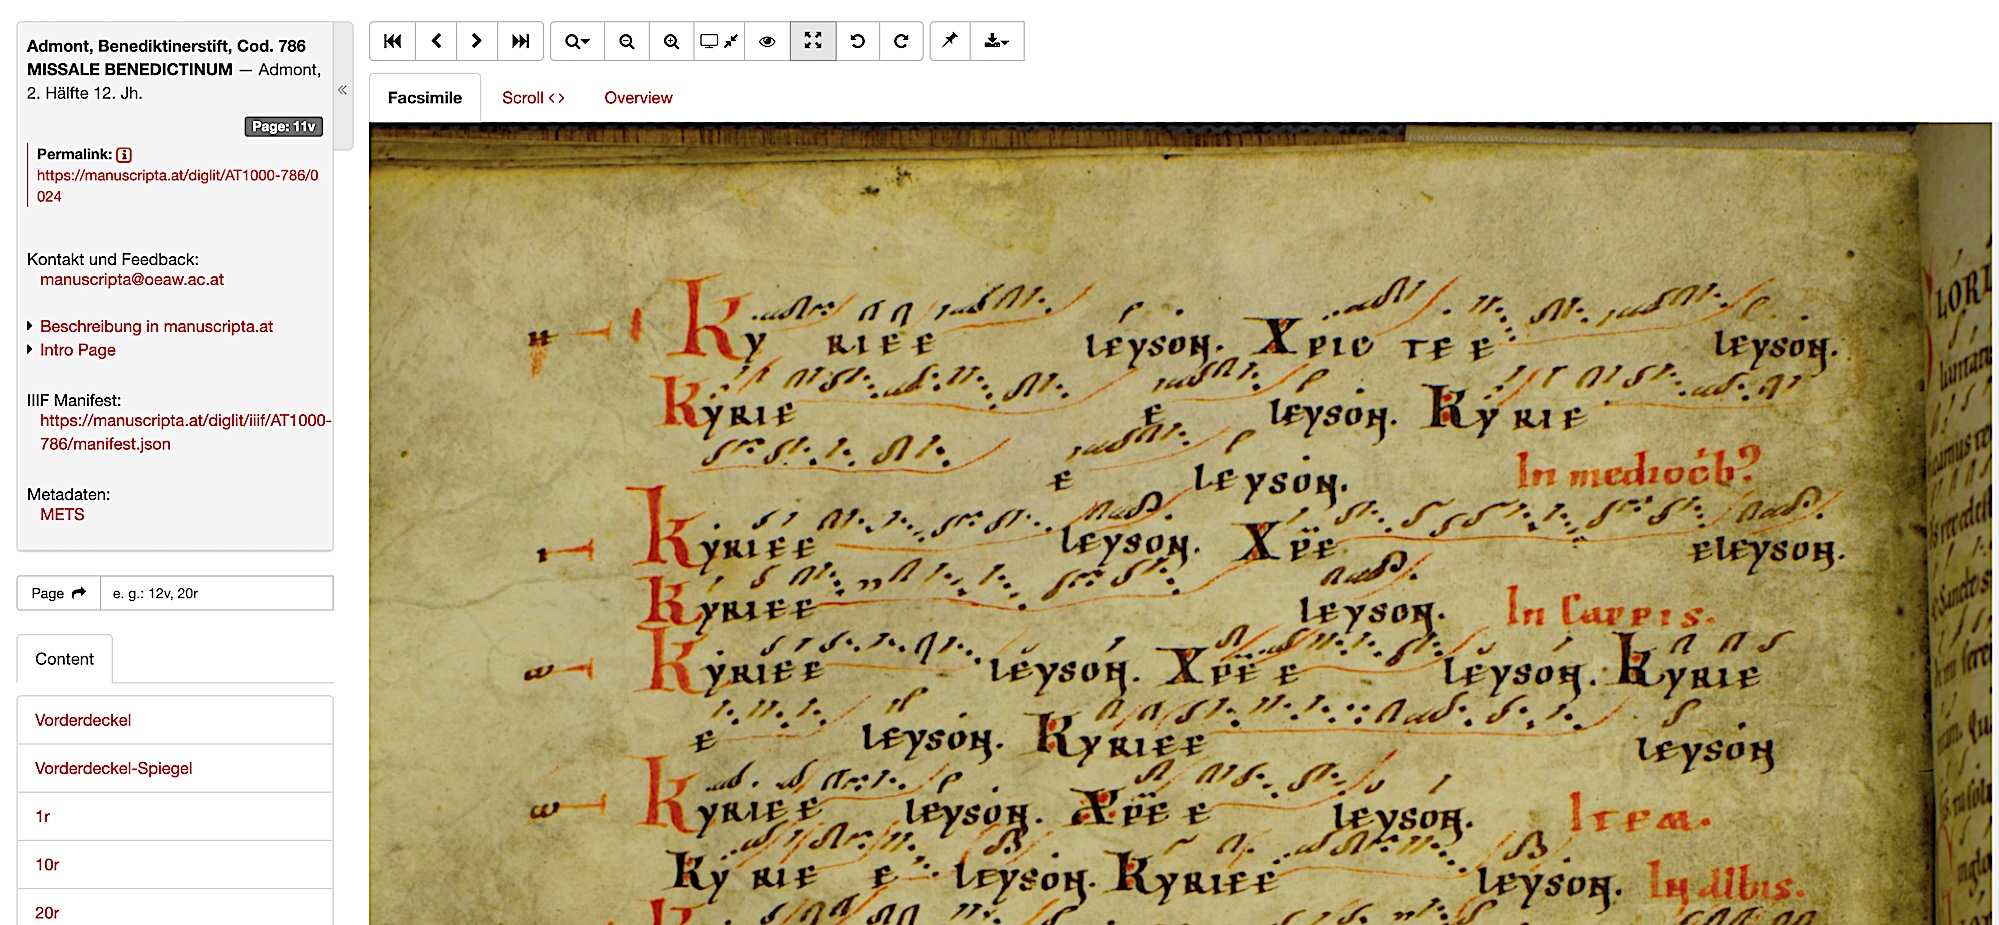 Admont, Benediktinerstift, Cod. 786
MISSALE BENEDICTINUM — Admont,
2. Hälfte 12. Jh.
Page: 11v
Permalink:
https://manuscripta.at/diglit/AT1000-786/0
024
Kontakt und Feedback:
manuscripta@oeaw.ac.at
Beschreibung in manuscripta.at
Intro Page
IIIF Manifest:
https://manuscripta.at/diglit/iiif/AT1000-
786/manifest.json
Metadaten:
METS
Page
e. g.: 12v, 20r
Content
Vorderdeckel
Vorderdeckel-Spiegel
1r
10r
20r
Facsimile
Scroll <>
Overview
Ky RIE E leyson. Xpic te e leyson.
Kyrie e leyson. Kyrie
e leyson. In
Kyriee leyson. Xpe eleyson.
Kyriee leyson. In Cappis.
Kyriee leyson. Xpe e leyson. Kyrie
e leyson. Kyriee leyson
Kyriee leyson. Xpe e leyson. Item.
Ky rie e leyson. Kyriee leyson. In albis.